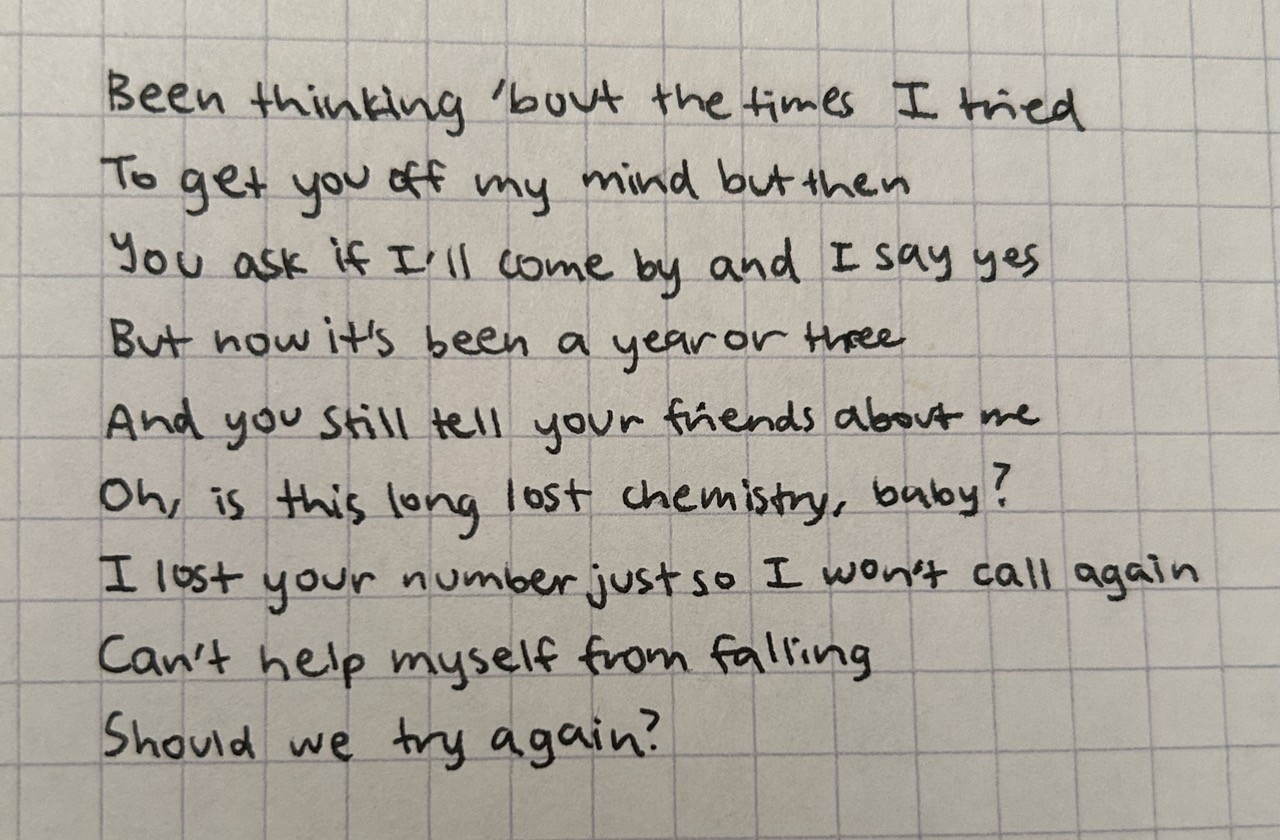 Been thinking 'bout the times I tried
To get you off my mind but then
You ask if I'll come by and I say yes
But now it's been a year or three
And you still tell your friends about me
Oh, is this long lost chemistry, baby?
I lost your number just so I won't call again
Can't help myself from falling
Should we try again?